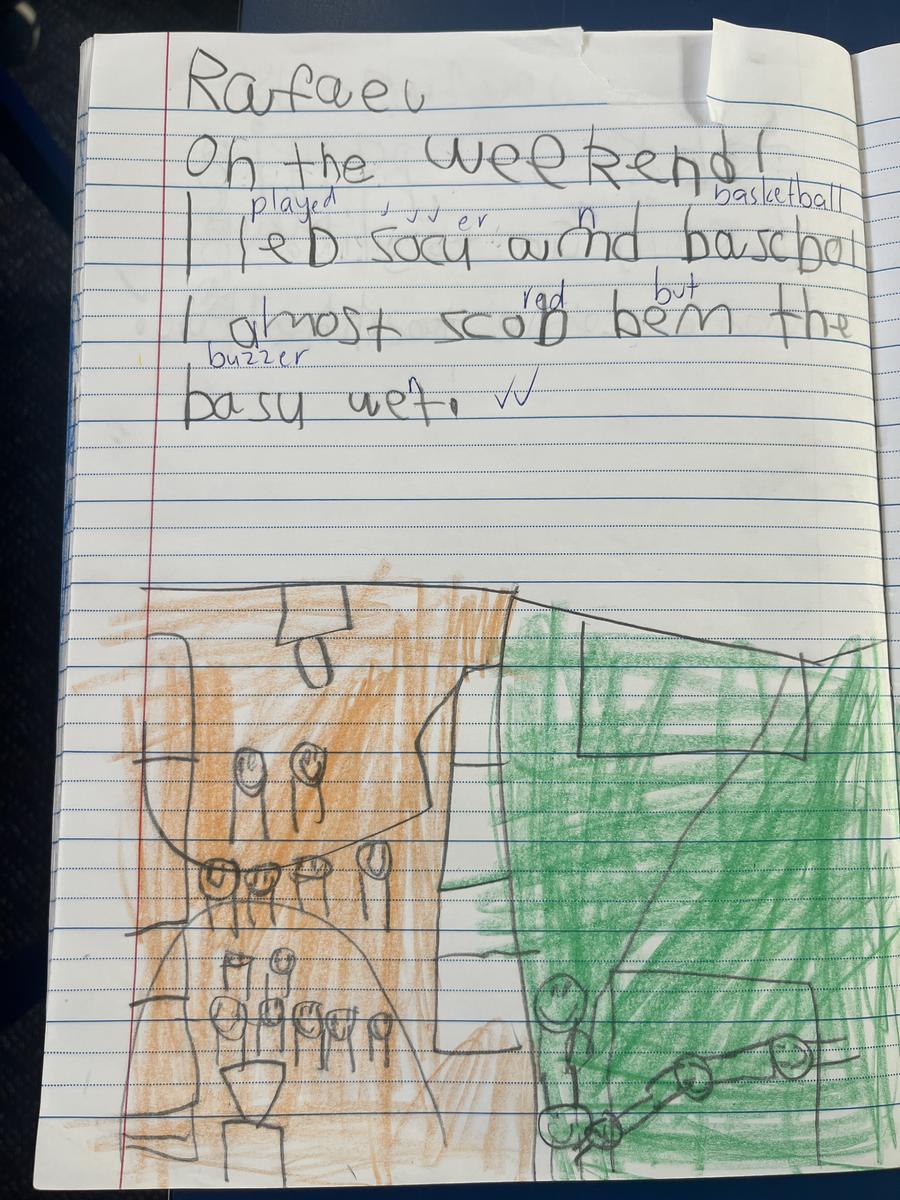 Rafael
On the weekend!
played er n basketball
I leb socu amd bascbol
red but
I almost scob bem the
buzzer
basu wet.